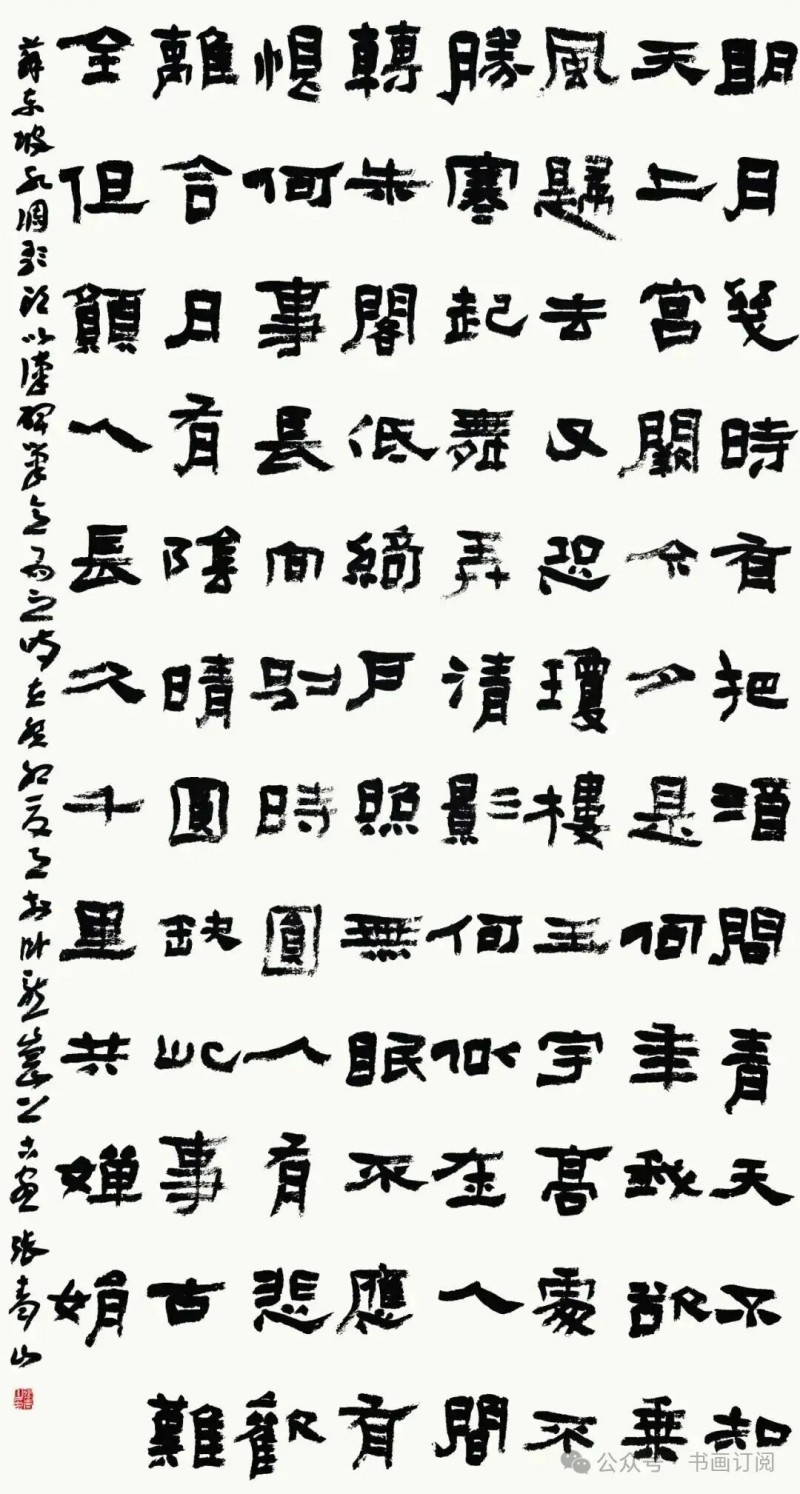 明月幾時有把酒問青天不知
天上宮闕今夕是何年我欲乘
風歸去又恐瓊樓玉宇高處不
勝寒起舞弄清影何似在人間
轉朱閣低綺戶照無眠不應有
恨何事長向別時圓人有悲歡
離合月有陰晴圓缺此事古難
全但願人長久千里共嬋娟
蘇東坡水調歌頭以漢碑筆意為之時在癸卯夏月於卧龍崗上古宛張青山
公众号 · 书画订阅